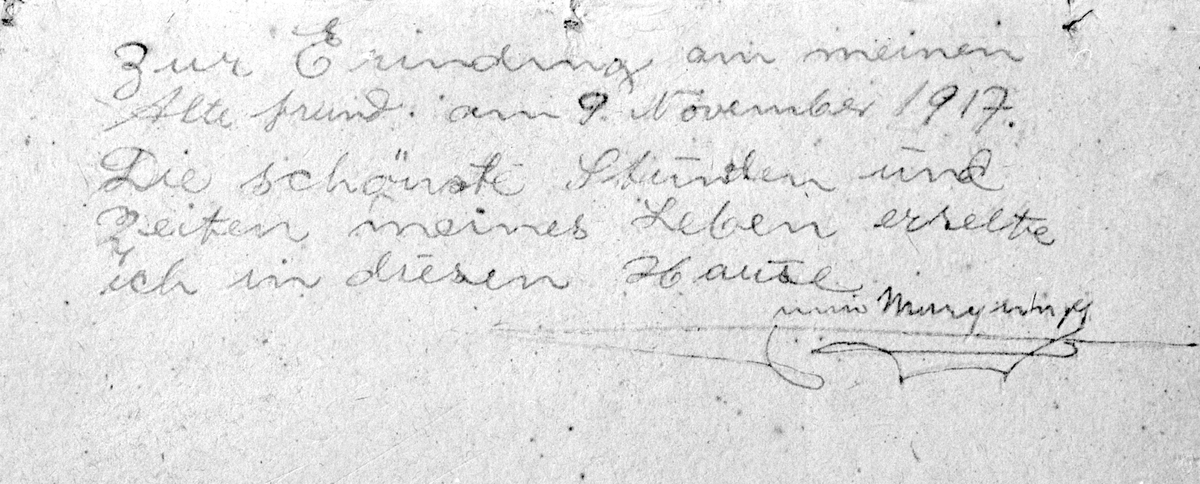 Zur Erindrung an meinen
Alte frund. am 9. November 1917.
Die schönste Stunden und
Zeiten meines Leben erselte
ich in diesen Hause